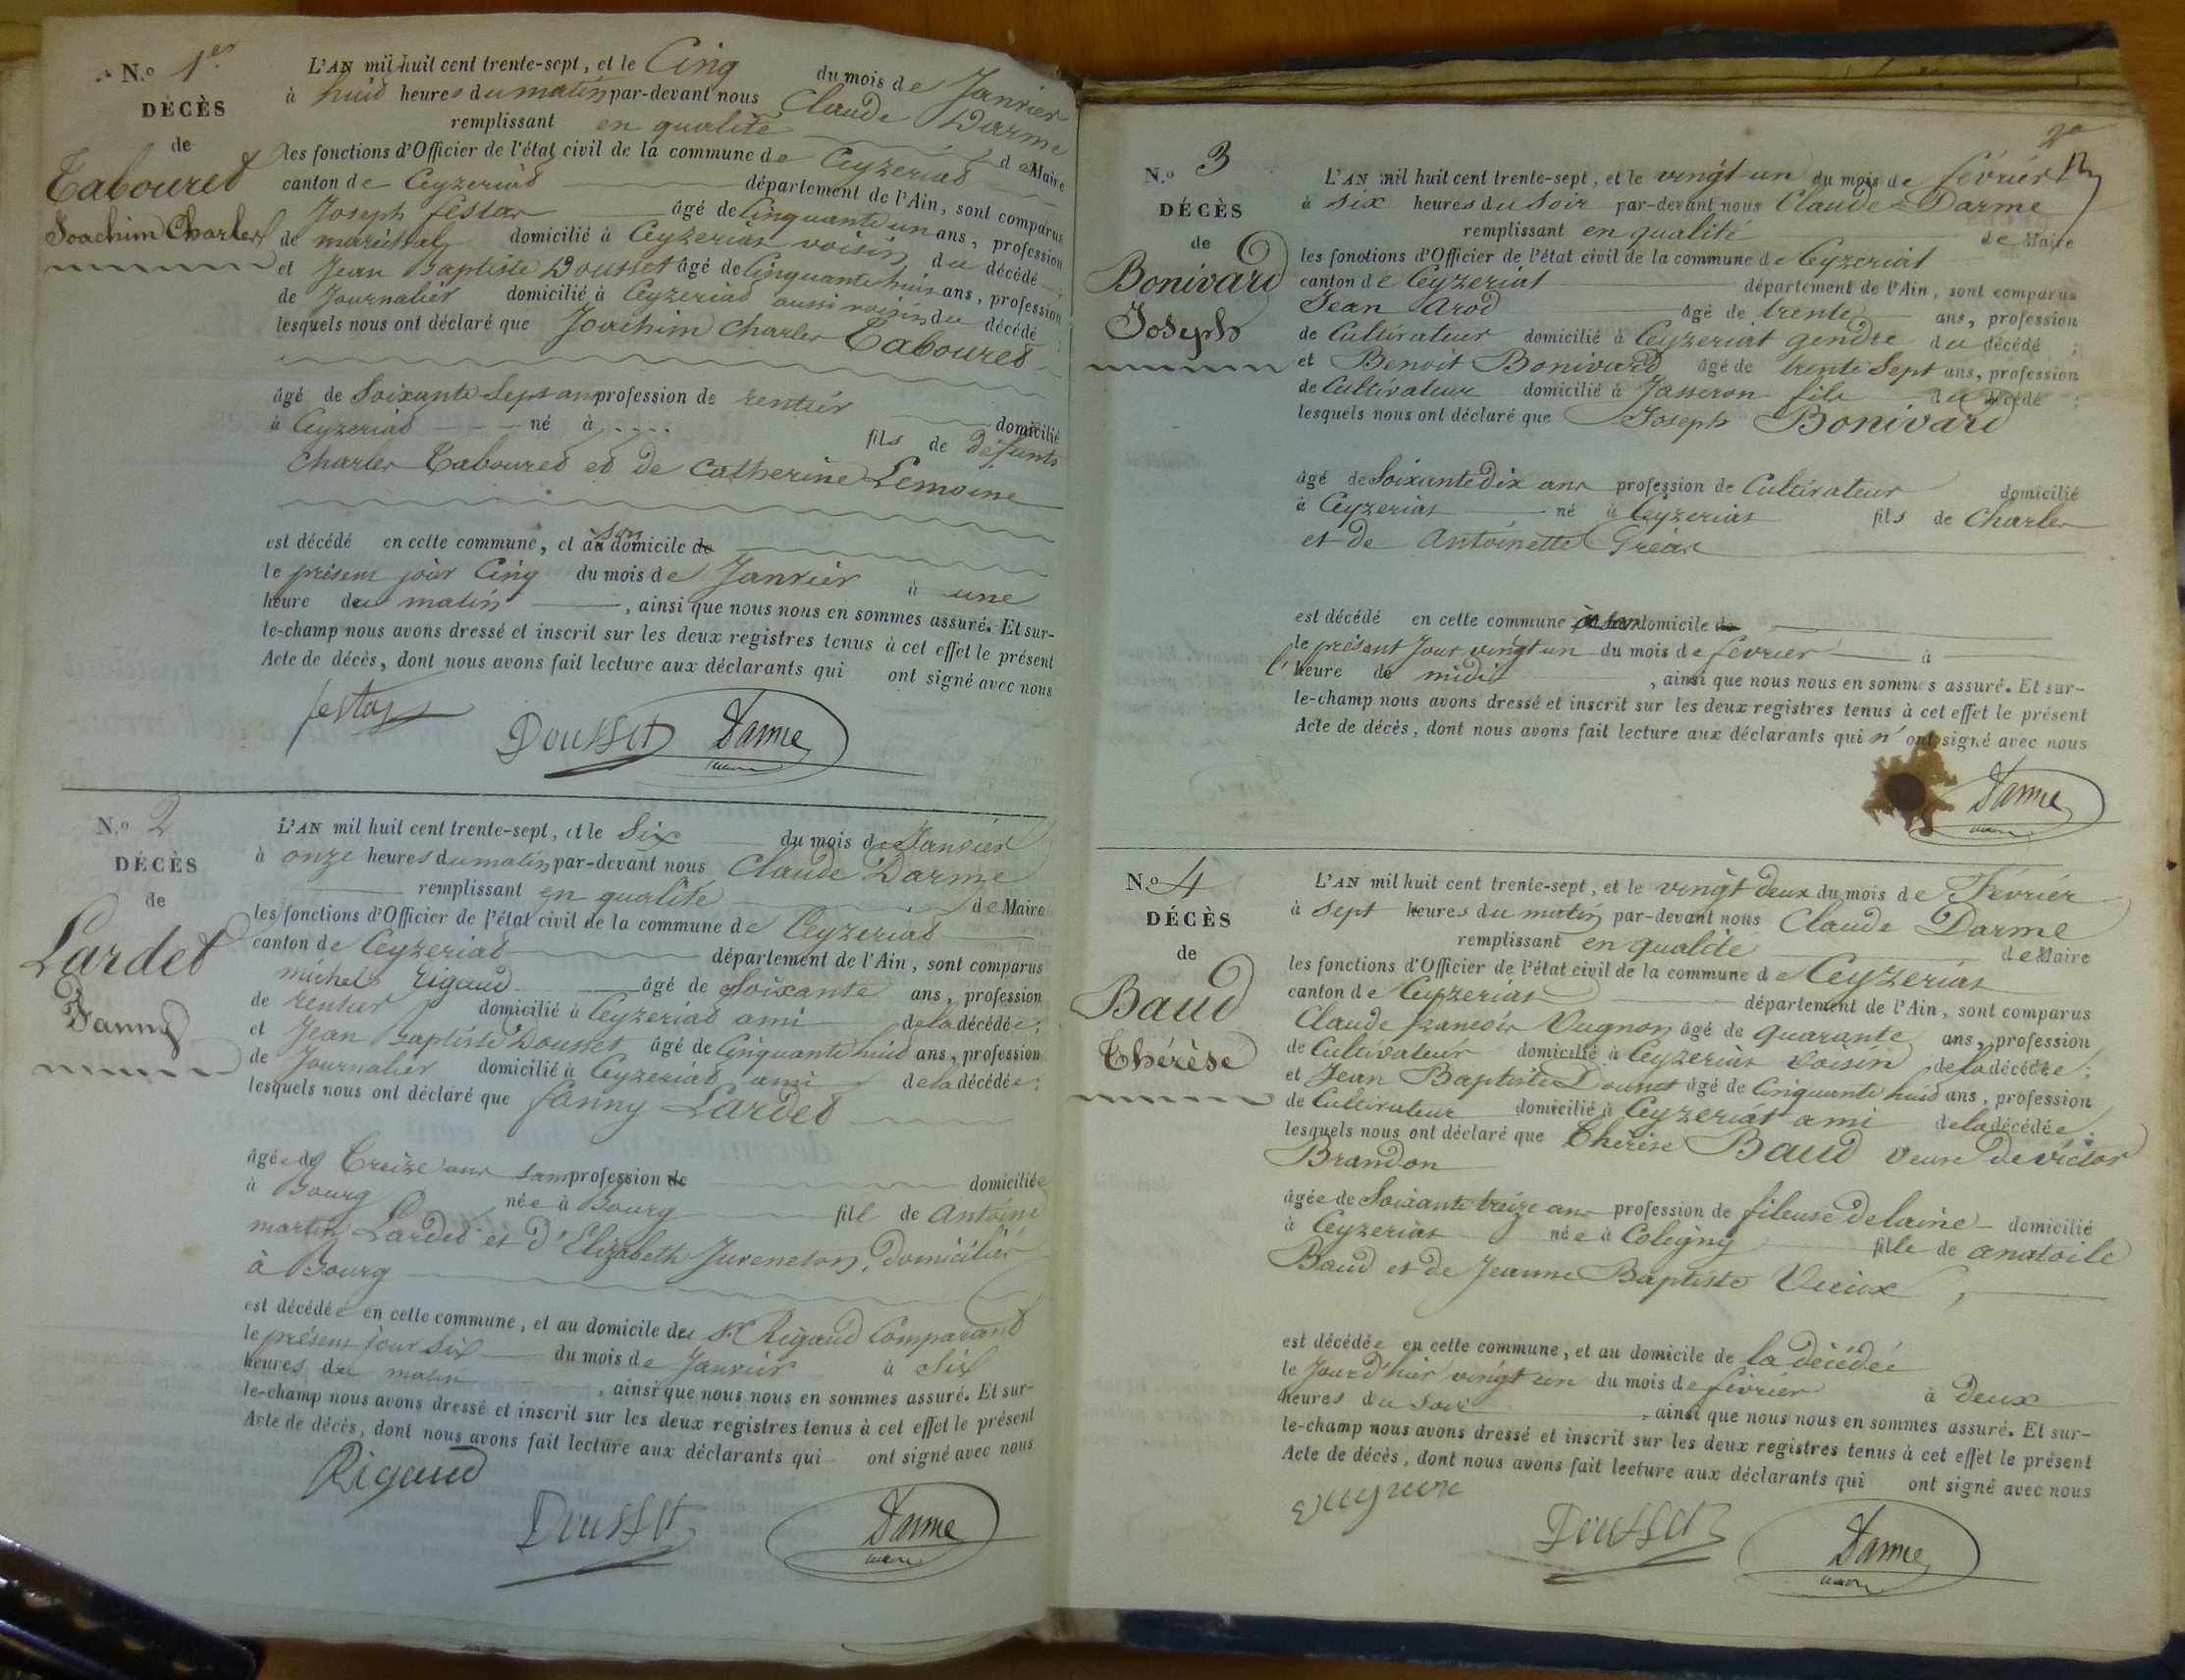 N.o 1er
DÉCÈS
de
Tabouret
Joachim Charles
L'AN mil huit cent trente-sept, et le Cinq du mois de Janvier
à huit heures du matin par-devant nous Claude Darme
remplissant en qualité de Maire
les fonctions d'Officier de l'état civil de la commune de Ceyzeriat
canton de Ceyzeriat département de l'Ain, sont comparus
Joseph festas âgé de Cinquante un ans, profession
de maréchal domicilié à Ceyzeriat voisin du décédé ;
et Jean Baptiste Dousset âgé de Cinquante huit ans, profession
de Journalier domicilié à Ceyzeriat aussi voisin du décédé ;
lesquels nous ont déclaré que Joachim Charles Tabouret
âgé de Soixante Sept ans profession de rentier domicilié
à Ceyzeriat né à fils de défunts
Charles Tabouret et de Catherine Lemoine
est décédé en cette commune, et au son domicile de
le présent jour Cinq du mois de Janvier à une
heure du matin , ainsi que nous nous en sommes assuré. Et sur-
le-champ nous avons dressé et inscrit sur les deux registres tenus à cet effet le présent
Acte de décès, dont nous avons fait lecture aux déclarants qui ont signé avec nous
festas
Dousset Darme
maire
N.o 2
DÉCÈS
de
Lardet
Fanny
L'AN mil huit cent trente-sept, et le Six du mois de Janvier
à onze heures du matin par-devant nous Claude Darme
remplissant en qualité de Maire
les fonctions d'Officier de l'état civil de la commune de Ceyzeriat
canton de Ceyzeriat département de l'Ain, sont comparus
michel Rigaud âgé de Soixante ans, profession
de rentier domicilié à Ceyzeriat ami de la décédée ;
et Jean Baptiste Dousset âgé de Cinquante huit ans, profession
de Journalier domicilié à Ceyzeriat ami de la décédée ;
lesquels nous ont déclaré que fanny Lardet
âgée de Treize ans sans profession de domiciliée
à Bourg née à Bourg fille de Antoine
martin Lardet et d'Elizabeth Juveneton, domiciliés
à Bourg
est décédée en cette commune, et au domicile du Sr Rigaud Comparant
le présent jour six du mois de Janvier à Six
heures du matin , ainsi que nous nous en sommes assuré. Et sur-
le-champ nous avons dressé et inscrit sur les deux registres tenus à cet effet le présent
Acte de décès, dont nous avons fait lecture aux déclarants qui ont signé avec nous
Rigaud
Dousset Darme
maire
N.o 3
DÉCÈS
de
Bonivard
Joseph
L'AN mil huit cent trente-sept, et le vingt un du mois de février
à six heures du Soir par-devant nous Claude Darme
remplissant en qualité de Maire
les fonctions d'Officier de l'état civil de la commune de Ceyzeriat
canton de Ceyzeriat département de l'Ain, sont comparus
Jean Arod âgé de trente ans, profession
de Cultivateur domicilié à Ceyzeriat gendre du décédé ;
et Benoit Bonivard âgé de trente Sept ans, profession
de Cultivateur domicilié à Jasseron fils du décédé ;
lesquels nous ont déclaré que Joseph Bonivard
âgé de Soixante dix ans profession de Cultivateur domicilié
à Ceyzeriat né à Ceyzeriat fils de Charles
et de Antoinette
est décédé en cette commune à son domicile de
le présent Jour vingt un du mois de février à
l'heure de midi , ainsi que nous nous en sommes assuré. Et sur-
le-champ nous avons dressé et inscrit sur les deux registres tenus à cet effet le présent
Acte de décès, dont nous avons fait lecture aux déclarants qui n'ont signé avec nous
Darme
maire
N.o 4
DÉCÈS
de
Baud
Thérèse
L'AN mil huit cent trente-sept, et le vingt deux du mois de Février
à sept heures du matin par-devant nous Claude Darme
remplissant en qualité de Maire
les fonctions d'Officier de l'état civil de la commune de Ceyzeriat
canton de Ceyzeriat département de l'Ain, sont comparus
Claude francois Vugnon âgé de quarante ans, profession
de Cultivateur domicilié à Ceyzeriat voisin de la décédée ;
et Jean Baptiste Dousset âgé de Cinquante huit ans, profession
de Cultivateur domicilié à Ceyzeriat ami de la décédée ;
lesquels nous ont déclaré que Thérèse Baud veuve de victor
Brandon
âgée de Soixante treize ans profession de fileuse de laine domicilié
à Ceyzeriat née à Coligny fille de anatoile
Baud et de Jeanne Baptiste Vieux,
est décédée en cette commune, et au domicile de la décédée
le Jour d'hier vingt un du mois de février à deux
heures du soir , ainsi que nous nous en sommes assuré. Et sur-
le-champ nous avons dressé et inscrit sur les deux registres tenus à cet effet le présent
Acte de décès, dont nous avons fait lecture aux déclarants qui ont signé avec nous
Dousset Darme
maire